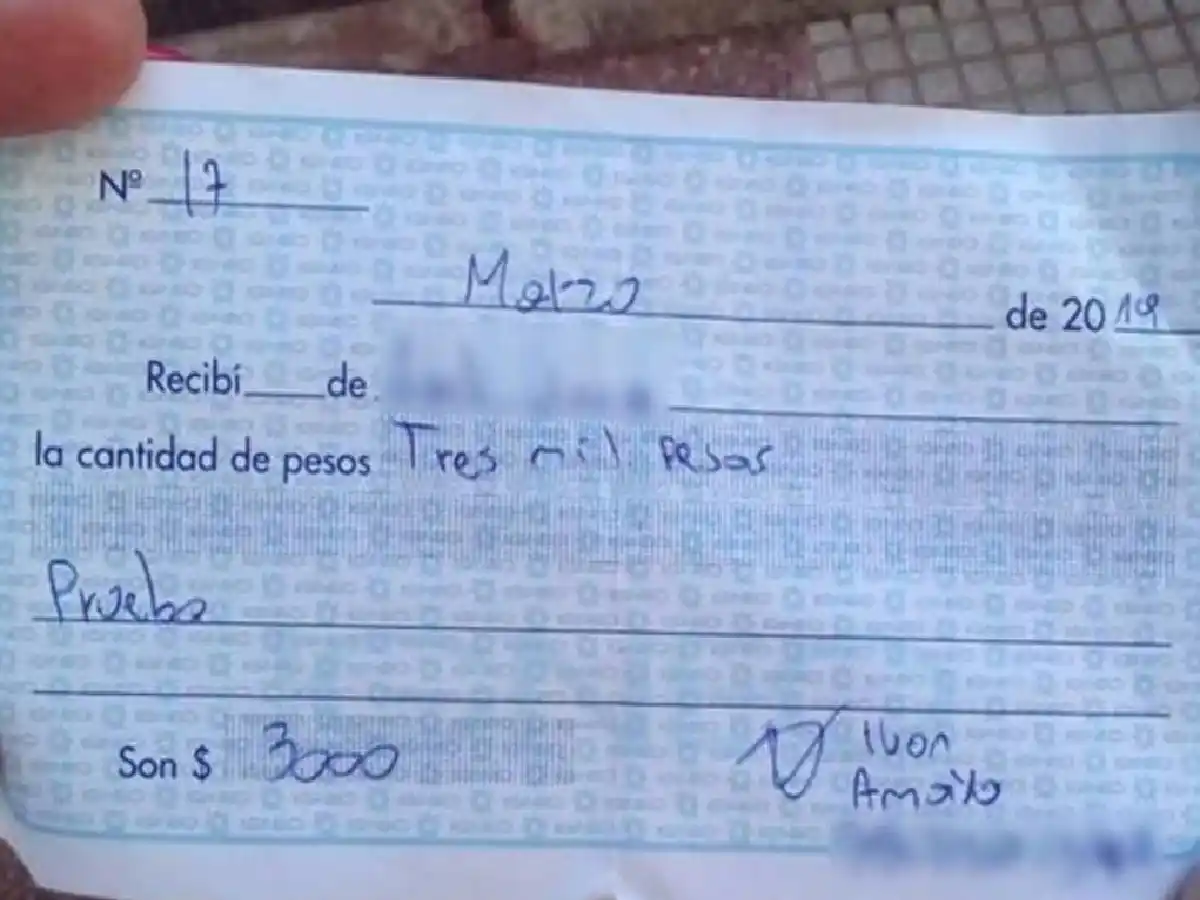 Nº 17
Marzo de 2019
Recibí de
la cantidad de pesos Tres mil Pesos
Prueba
Son $ 3000
Ivan